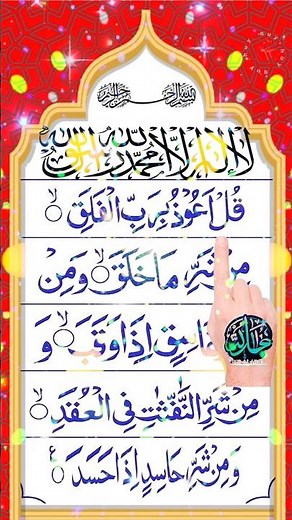 بسم الله الرحمن الرحيم
لا إله إلا الله محمد رسول الله
قُلْ اَعُوْذُ بِرَبِّ الْفَلَقِ
مِنْ شَرِّ مَا خَلَقَ وَمِنْ
اِذَا وَقَبَ وَ
مِنْ شَرِّ النَّفّٰثٰتِ فِى الْعُقَدِ
وَمِنْ شَرِّ حَاسِدٍ اِذَا حَسَدَ